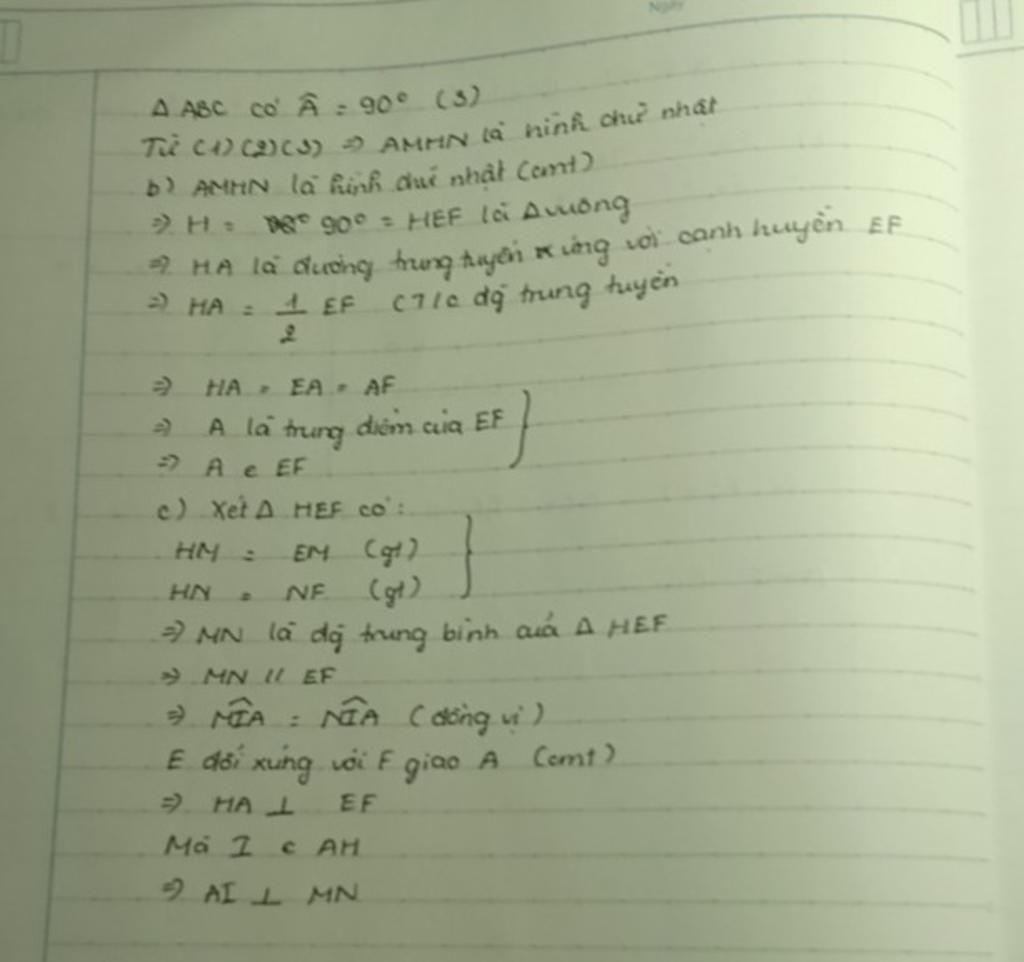 Ngày
Δ ABC có Â = 90° (3)
Từ (1) (2) (3) => AMHN là hình chữ nhật
b) AMHN là hình chữ nhật (cmt)
=> H = 90° = HEF là Δ vuông
=> HA là đường trung tuyến ứng với cạnh huyền EF
=> HA = 1/2 EF (T/c đg trung tuyến
=> HA = EA = AF
=> A là trung điểm của EF
=> A e EF
c) Xét Δ HEF có:
HM = EM (gt)
HN = NF (gt)
=> MN là đg trung bình của Δ HEF
=> MN // EF
=> MIA = NIA (đồng vị)
E đối xứng với F giao A (cmt)
=> HA ⊥ EF
Mà I e AH
=> AI ⊥ MN